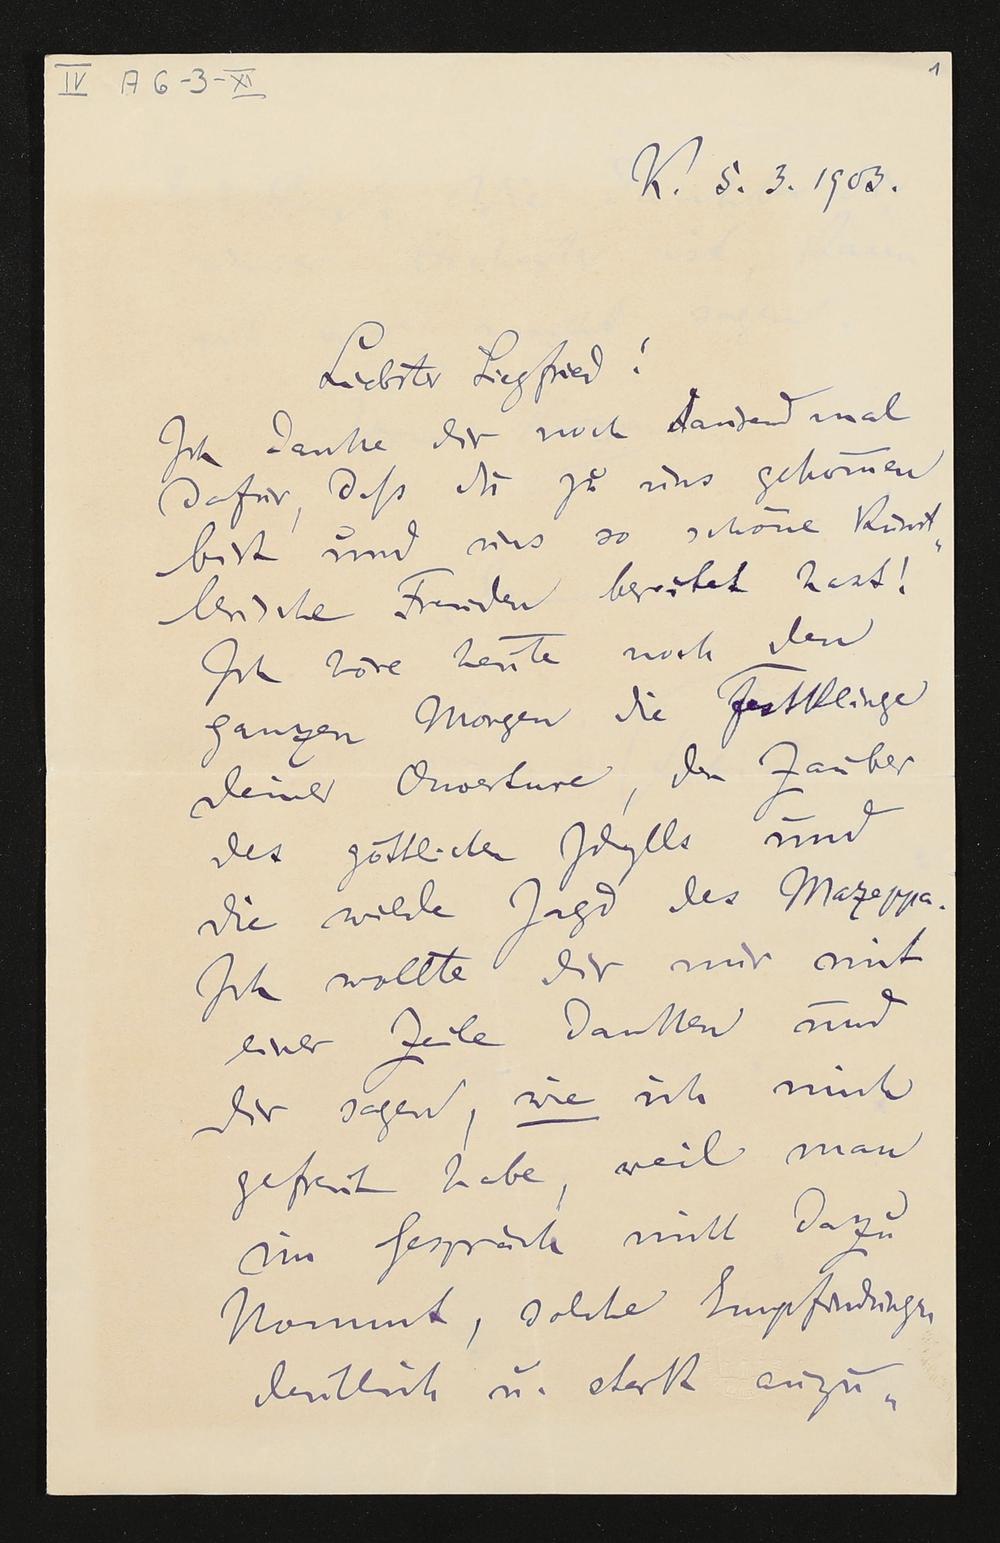 IV A 6-3-XI
1
K. 5. 3. 1903.
Liebster Siegfried!
Ich danke dir noch tausendmal
dafür, daſs du zu uns gekom̄en
bist und uns so schöne Künst„
lerische Freuden bereitet hast!
Ich höre heute noch den
ganzen Morgen die Festklänge
deiner Ouverture, den Zauber
des göttlichen Idylls und
die wilde Jagd des Mazeppa.
Ich wollte dir nur mit
einer Zeile danken und
dir sagen, wie ich mich
gefreut habe, weil man
im Gespräch nicht dazu
kommt, solche Empfindungen
deutlich u. stark auszu„